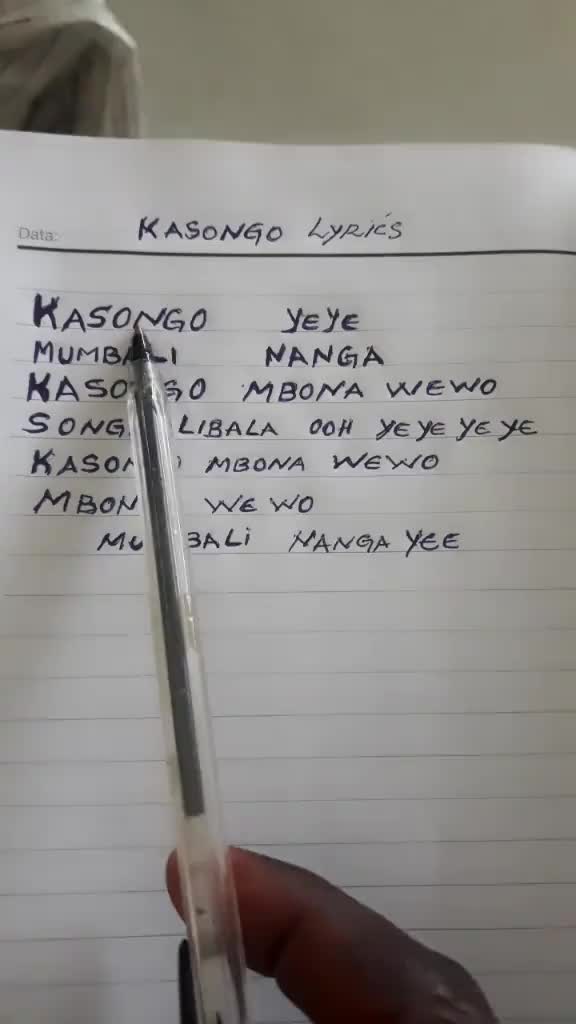 Data: KASONGO LYRICS
KASONGO YEYE
MUMBALI NANGA
KASONGO MBONA WEWO
LIBALA OOH YE YE YE YE
KASONGO MBONA WEWO
MBONA WEWO
MUMBALI NANGA YEE